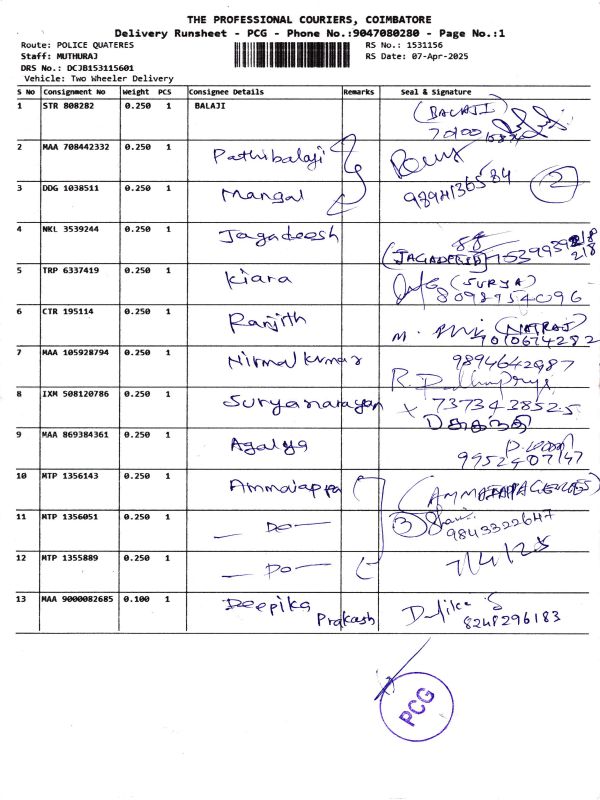 THE PROFESSIONAL COURIERS, COIMBATORE
Delivery Runsheet - PCG - Phone No.:9047080280 - Page No.:1
Route: POLICE QUATERES
RS No.: 1531156
Staff: MUTHURAJ
RS Date: 07-Apr-2025
DRS No.: DCJB153115601
Vehicle: Two Wheeler Delivery
S No Consignment No Weight PCS Consignee Details Remarks Seal & Signature
1 STR 808282 0.250 1 BALAJI (BALAJI)
2 MAA 708442332 0.250 1 Pathibalaji
3 DDG 1038511 0.250 1 Mangal 9894136584 2
4 NKL 3539244 0.250 1 Jagadeesh
(JAGADEESH)
5 TRP 6337419 0.250 1 Kiara (SURYA)
8098954096
6 CTR 195114 0.250 1 Ranjith (NATRAJ)
9010674282
7 MAA 105928794 0.250 1 Nirmal Kumar 9894642987
8 IXM 508120786 0.250 1 Suryanarayan 7373438525
9 MAA 869384361 0.250 1 Agalya
9952407147
10 MTP 1356143 0.250 1 Ammaiappa (AMMAIAPPA AGENCIES)
11 MTP 1356051 0.250 1 - Do - 3
9843322647
12 MTP 1355889 0.250 1 - Do - 7/4/25
13 MAA 9000082685 0.100 1 Deepika Prakash
8248296183
PCG